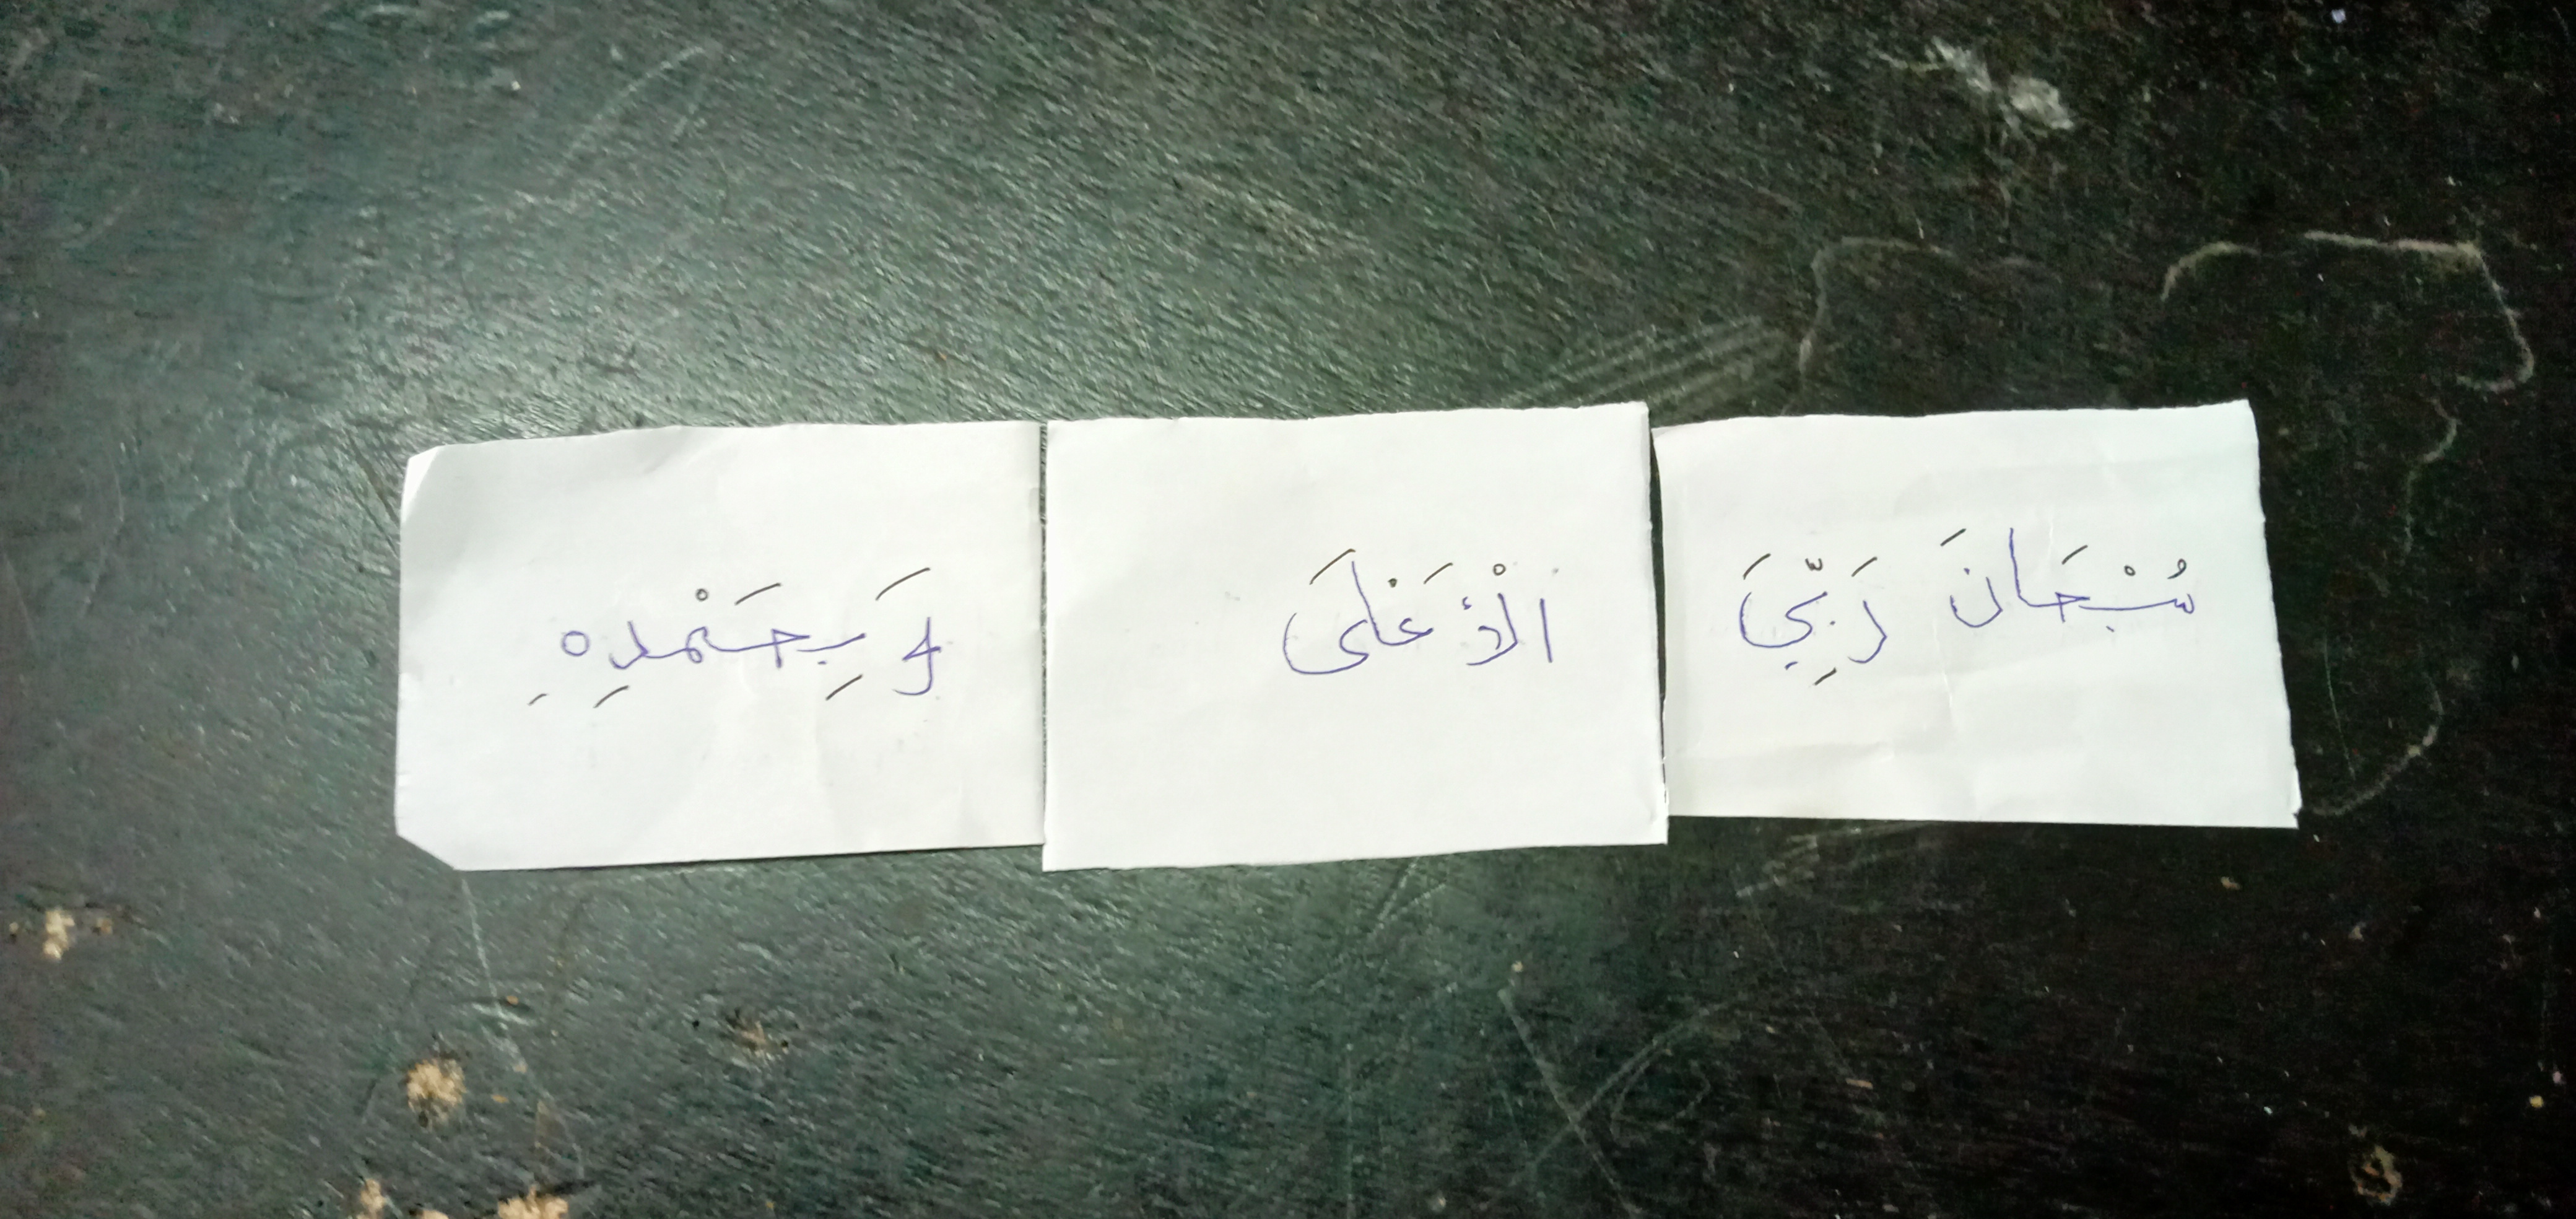 سُبْحَانَ رَبِّيَ الْأَعْلَى وَ بِحَمْدِهِ